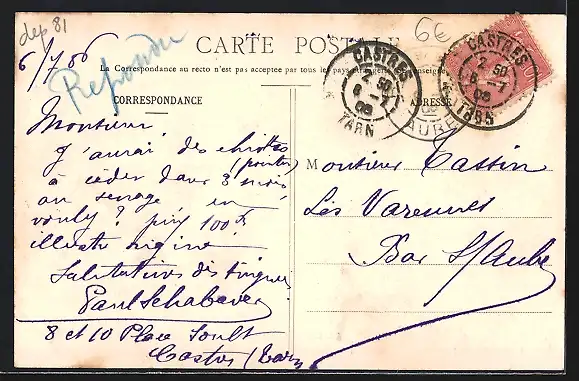 dep 81
6€
6/7/06
Répondu
CARTE POSTALE
La Correspondance au recto n'est pas acceptée par tous les pays étrangers
CORRESPONDANCE
ADRESSE
CASTRES
2 50
6 - 7
06
TARN
CASTRES
2 50
6 - 7
06
TARN
AUBE
Monsieur,
J'aurai des chiots
(pointer)
à céder dans 3 mois
au sevrage, en
voulez? prix 100f
illustre origine
Salutations distinguées
Paul Schabaver
8 et 10 Place Soult
Castres (Tarn)
Monsieur Tassin
Les Varennes
Bar S/Aube